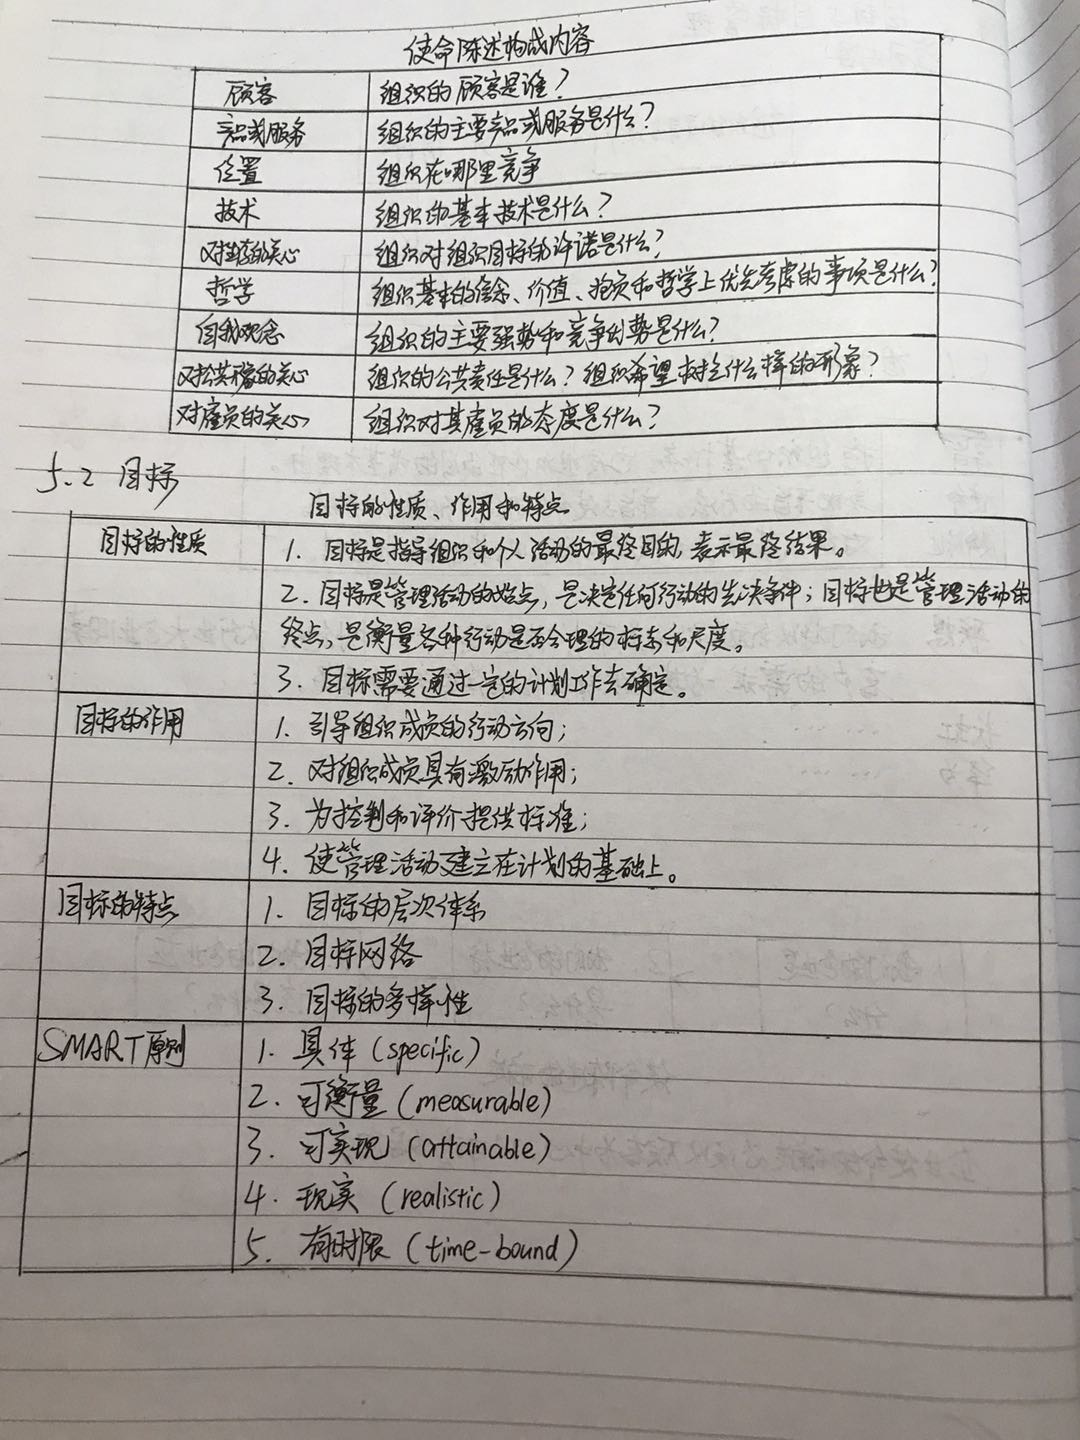 使命陈述构成内容
顾客 组织的顾客是谁？
产品或服务 组织的主要产品或服务是什么？
位置 组织在哪里竞争
技术 组织的基本技术是什么？
对生存的关心 组织对组织目标的许诺是什么？
哲学 组织基本的信念、价值、抱负和哲学上优先考虑的事项是什么？
自我观念 组织的主要强势和竞争优势是什么？
对公共形象的关心 组织的公共责任是什么？组织希望树什么样的形象？
对雇员的关心 组织对其雇员的态度是什么？
5.2 目标
目标的性质、作用和特点
目标的性质 1. 目标是指导组织和个人活动的最终目的，表示最终结果。
2. 目标是管理活动的始点，是决定任何行动的先决条件；目标也是管理活动的
终点，是衡量各种行动是否合理的标志和尺度。
3. 目标需要通过一定的计划工作去确定。
目标的作用 1. 引导组织成员的行动方向；
2. 对组织成员具有激励作用；
3. 为控制和评价提供标准；
4. 使管理活动建立在计划的基础上。
目标的特点 1. 目标的层次体系
2. 目标网络
3. 目标的多样性
SMART原则 1. 具体（specific）
2. 可衡量（measurable）
3. 可实现（attainable）
4. 现实（realistic）
5. 有时限（time-bound）